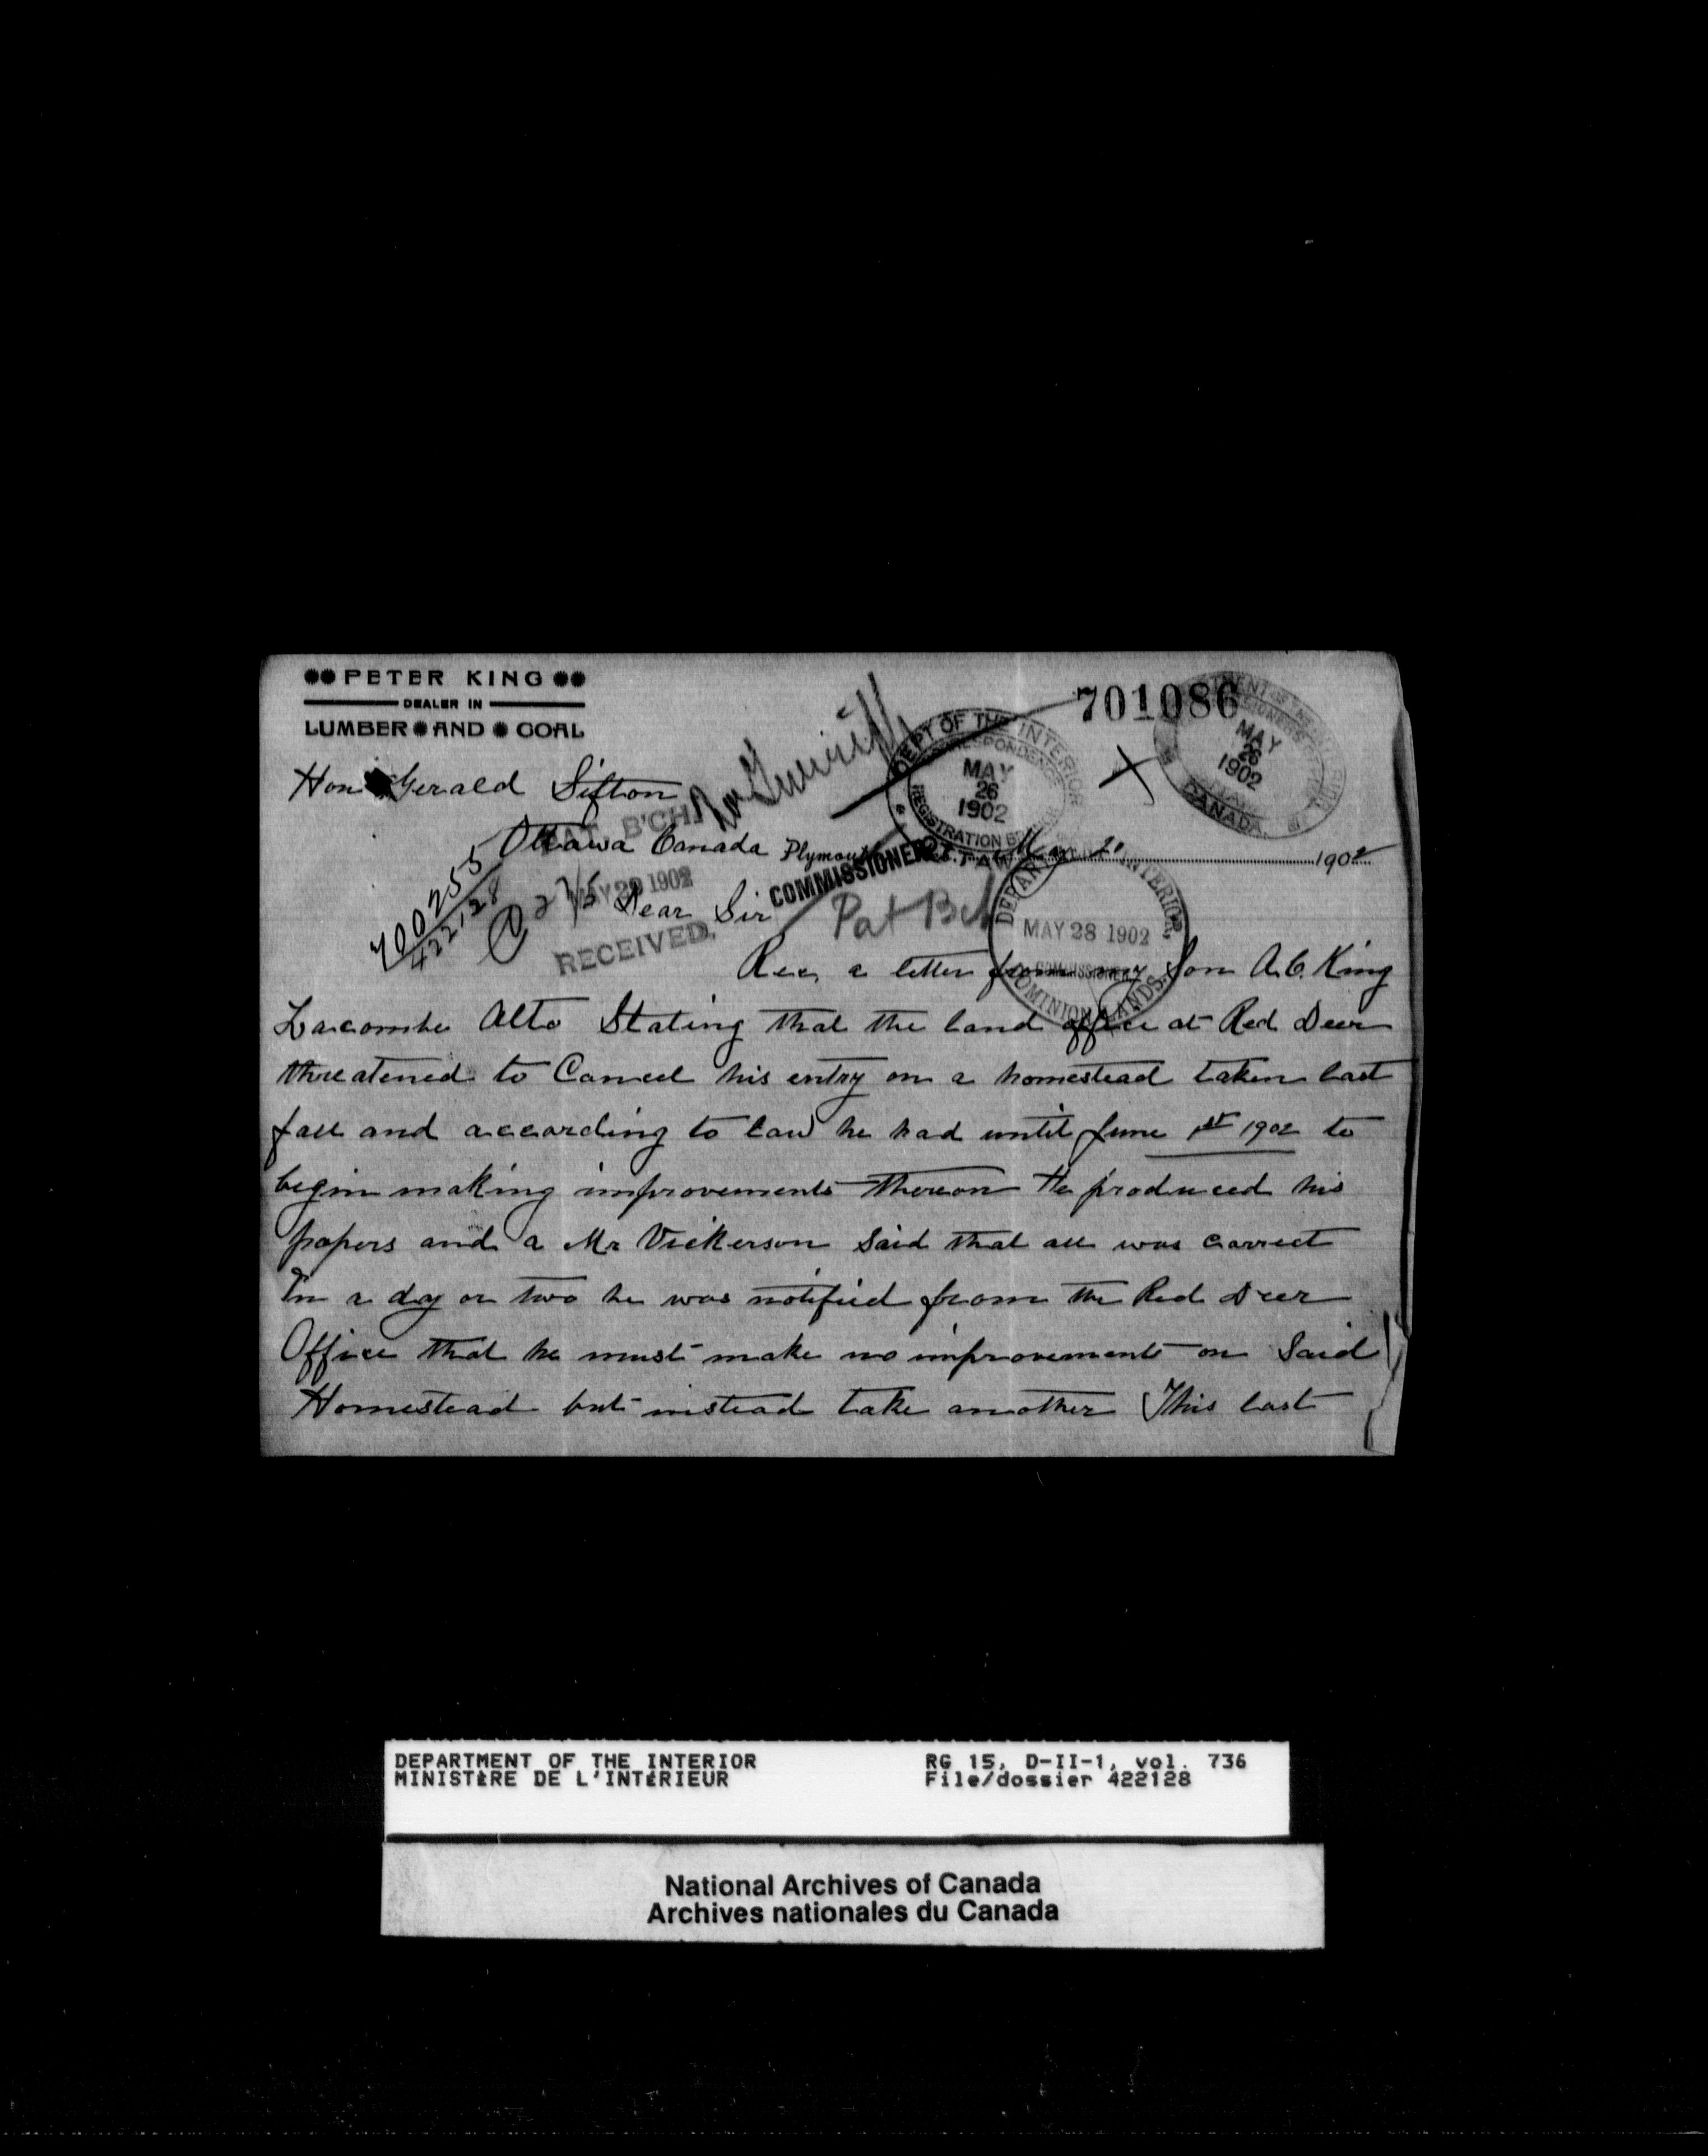 PETER KING
DEALER IN
LUMBER AND COAL
701086
Hon Gerald Sifton
Ottawa Canada
PAT. B'CH.
MAY 29 1902
RECEIVED.
DEPT OF THE INTERIOR
CORRESPONDENCE
MAY
26
1902
REGISTRATION
MAY
26
1902
CANADA
Plymouth
May 20 1902
COMMISSIONER
700255
422128
27/5
Pat Bch
DEPARTMENT INTERIOR,
MAY 28 1902
COMMISSIONER
DOMINION LANDS.
Dear Sir
Rec, a letter from my Son A.C. King
Lacombe Alta Stating that the land office at Red Deer
threatened to Cancel his entry on a homestead taken last
fall and according to law he had until June 1st 1902 to
begin making improvements thereon He produced his
papers and a Mr Vickerson Said that all was correct
In a day or two he was notified from the Red Deer
Office that he must make no improvements on Said
Homestead but instead take another This last
DEPARTMENT OF THE INTERIOR
MINISTÈRE DE L'INTÉRIEUR
RG 15, D-II-1, vol. 736
File/dossier 422128
National Archives of Canada
Archives nationales du Canada